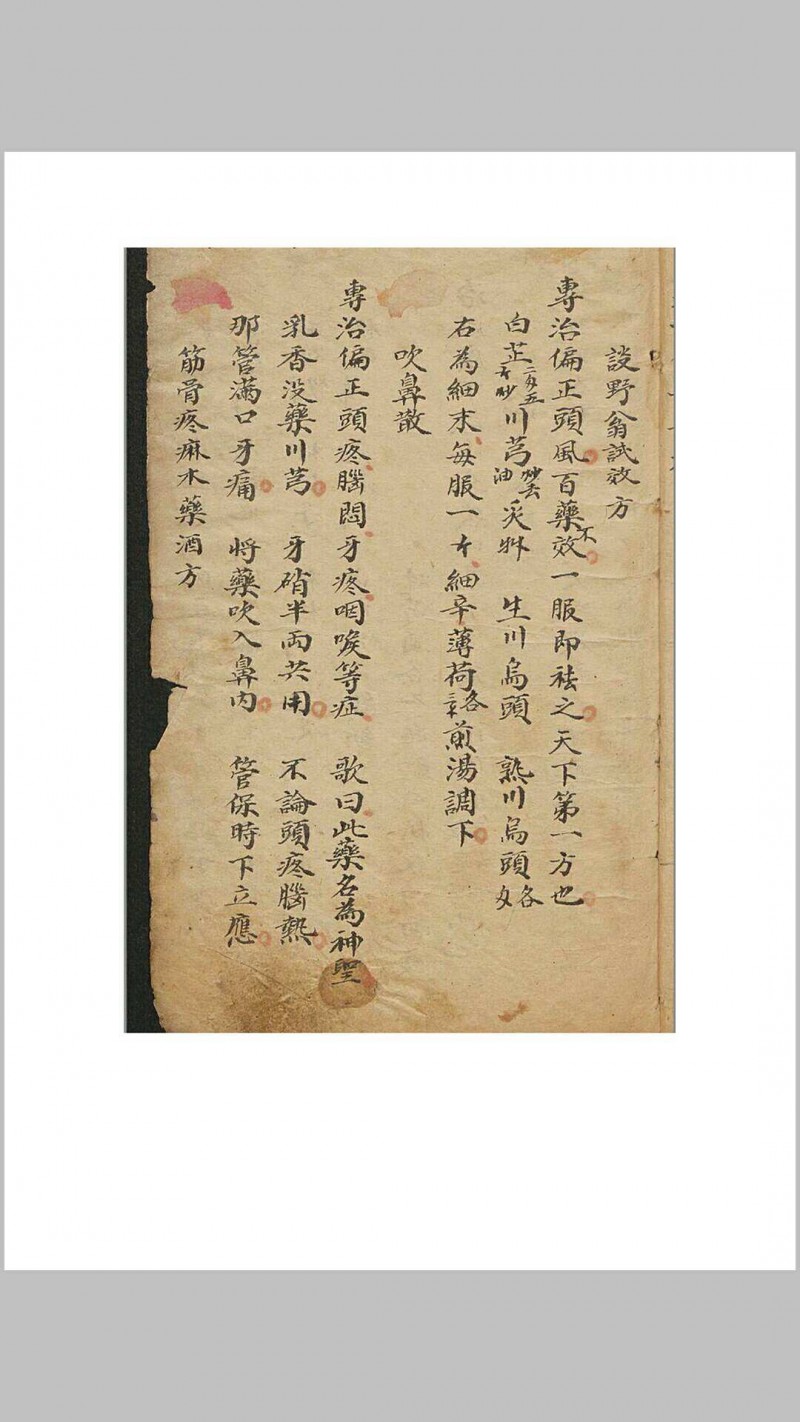 談野翁試效方
專治偏正頭風百藥不效一服即祛之天下第一方也
白芷二兩五錢炒川芎炒去油炙艸 生川烏頭 熟川烏頭各
右為細末每服一錢細辛薄荷各煎湯調下
吹鼻散
專治偏正頭疼腦悶牙疼咽喉等症 歌曰此藥名為神聖
乳香沒藥川芎 牙硝半兩共用 不論頭疼腦熱
那管滿口牙痛 將藥吹入鼻內 管保時下立應
筋骨疼麻木藥酒方